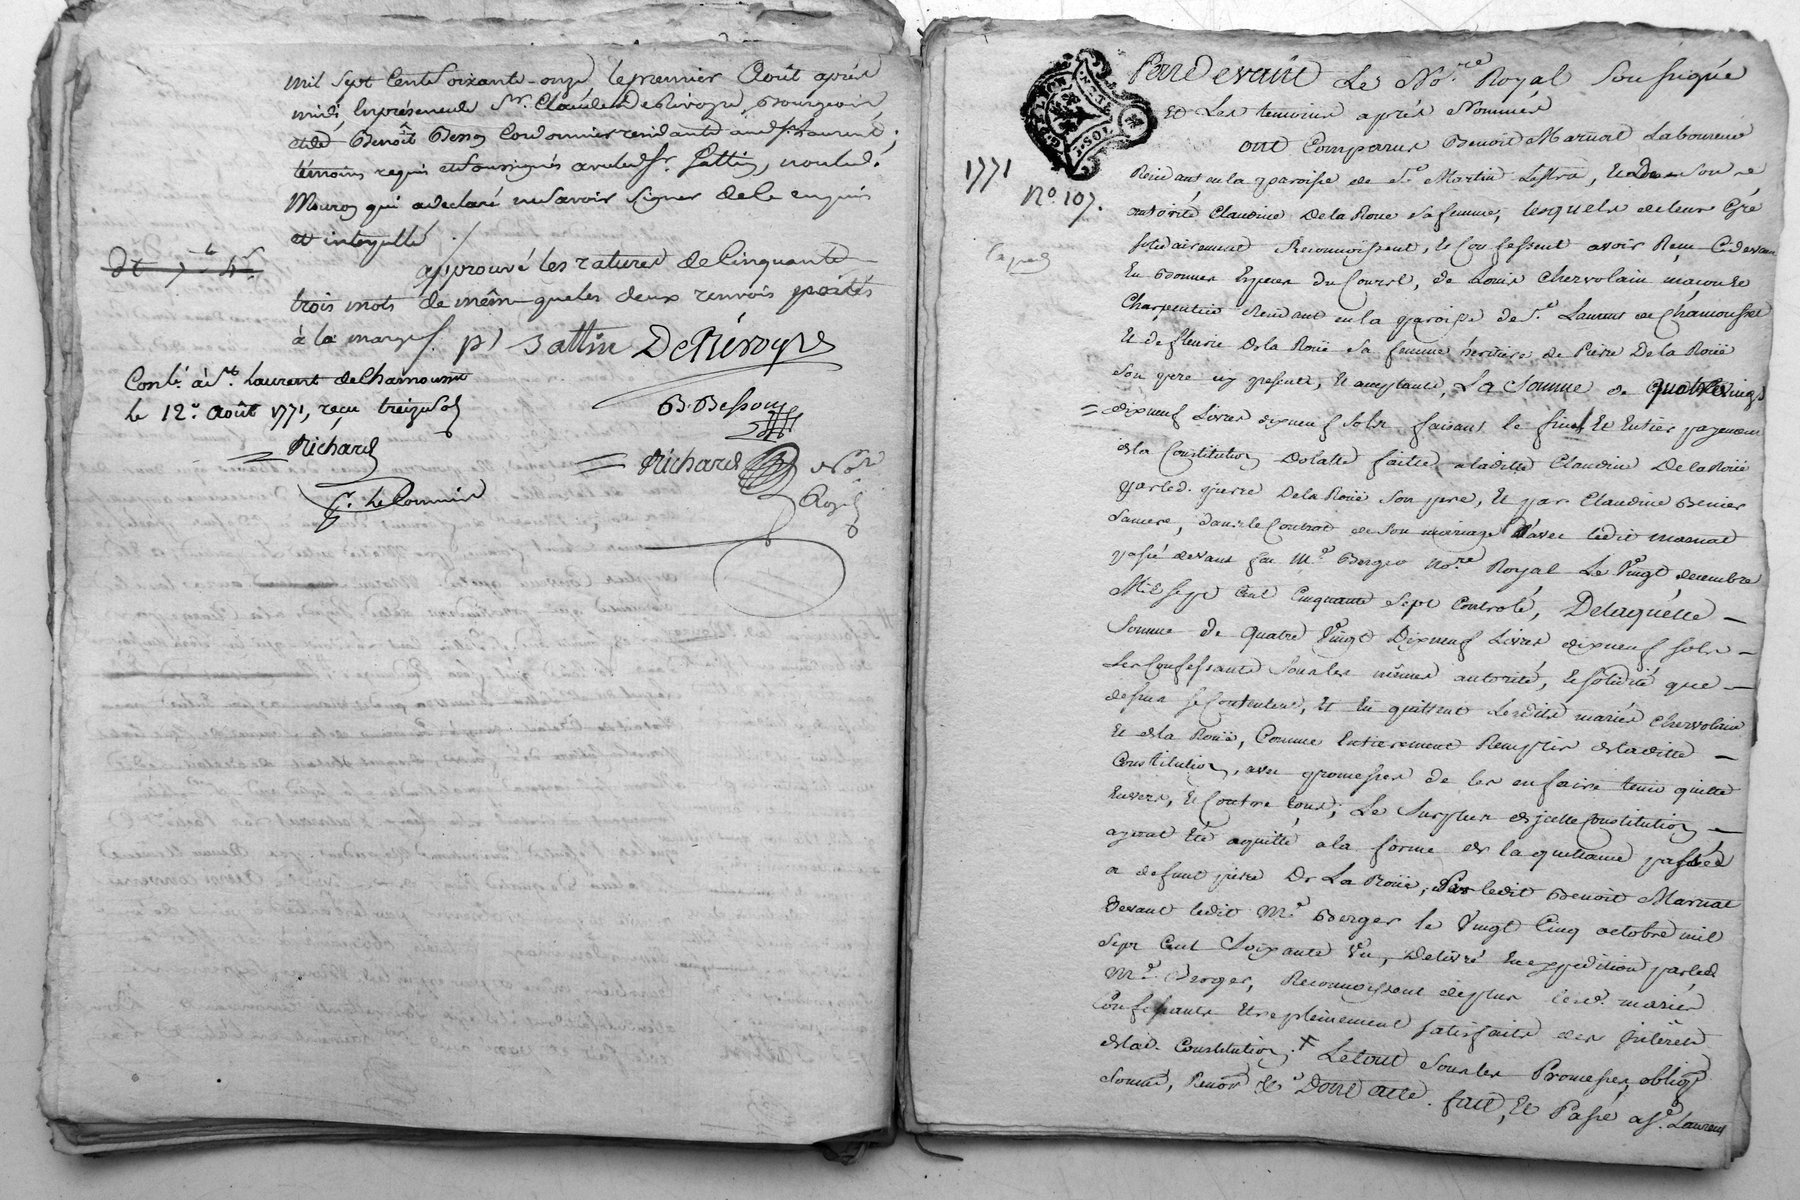 mil sept cent soixante-onze le premier Août après
midi, En présence de Sr. Claude DeRivoyre, Bourgeois
et de Benoît Besson Cordonnier résidants aud. St. Laurent,
témoins requis et soussignés avec led. Sr. Sattin, non led.
Mouron qui a déclaré ne savoir signer de ce enquis
et interpellé ./.
approuvé les ratures de Cinquante
trois mots de même que les deux renvois portés
à la marge. p1 Sattin DeRivoyre
Conlé. à St. Laurent de Chamousset
le 12e. Août 1771, reçu treize sols
B. Besson
Richard
Richard Nore
Royal
Sr. Le Commis
Pardevant Le Nore Royal Soussigné
Et Les temoins après Nommés
1771
No. 107.
ont Comparus Benoit Marnat Laboureur
Residant en la paroisse de St. Martin Lestra, Et De son
autorité Claudine De la Roue sa femme, lesquels de leur Gré
solidairement Reconnoissent, & Confessent avoir Reçu Cidevant
En Bonnes Especes du Cours, de Louis Chervolain maçon Et
Charpentier Residant en la paroisse de St. Laurent de Chamousset
Et de fleurie De la Roüe sa femme heritiere de Pierre De la Roüe
son pere icy present, & acceptants, La Somme de Quatre vingt
dixneuf Livres dixneuf sols faisant le final Et Entier payement
de la Constitution Dotalle faitte a laditte Claudine De la Roüe
par led. pierre De la Roüe son pere, Et par Claudine Benier
sa mere, dans le Contrat de son mariage d'avec ledit Marnat
passé devant feu Me Berger Nore Royal Le Vingt decembre
Mil sept Cent Cinquante sept Controlé, De laquelle
Somme de Quatre Vingt Dixneuf Livres dixneuf sols
Les Confessants sous les mêmes autorité, & solidité que
dessus se Contentent, Et En quittent Lesdits mariés Chervolain
Et de la Roüe, Comme Entierement Remplis de laditte
Constitution, avec promesses de les en faire tenir quitte
Envers, & Contre tous; Le Surplus d'jcelle Constitution
ayant Eté aquitté a la forme de la quittance passée
a defunt pierre De La Roüe, Par ledit Benoit Marnat
Devant ledit Me Berger le Vingt Cinq octobre mil
sept Cent Soixante Un, Delivré En expedition par led.
Me Berger, Reconnoissent de plus lesd. mariés
Confessants Etre pleinement satisfaits des jnterêts
de lad. Constitution; + Le tout Sous les Promesses, oblig.
Soum., Renon &c. Dont acte. fait, Et Passé a St. Laurent